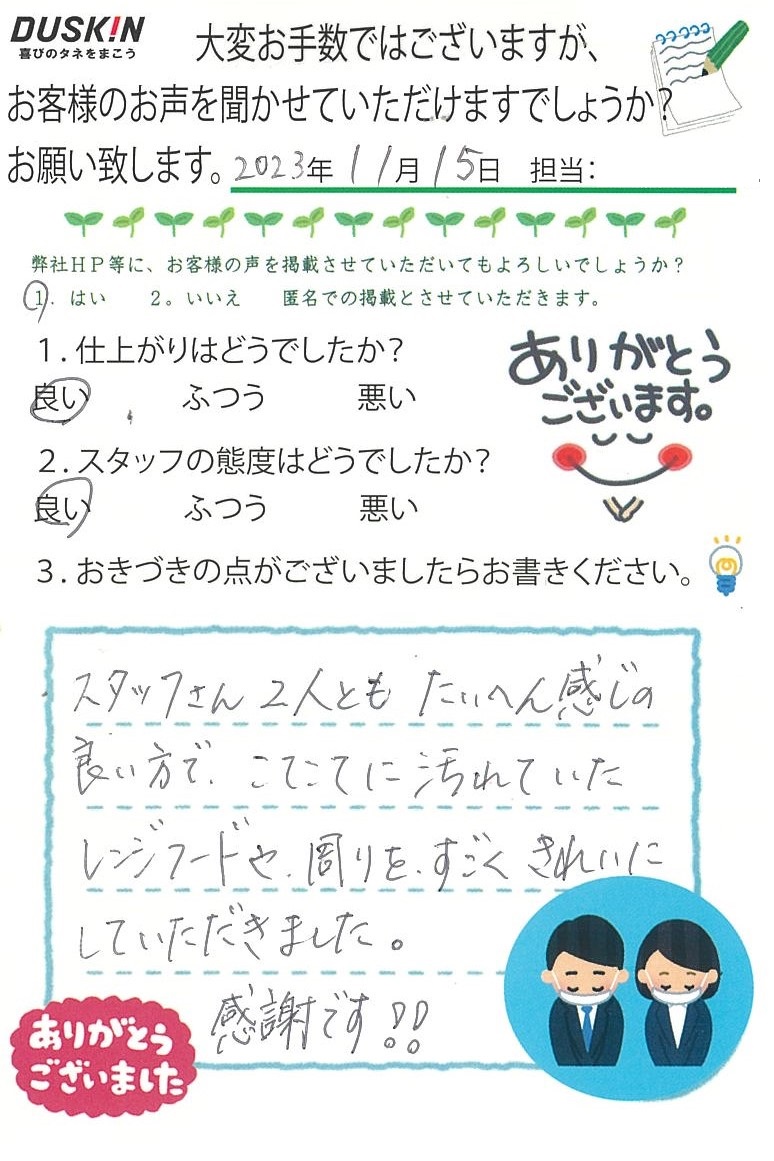 DUSK!N
喜びのタネをまこう
大変お手数ではございますが、
お客様のお声を聞かせていただけますでしょうか?
お願い致します。2023年 11月 15日 担当:
弊社HP等に、お客様の声を掲載させていただいてもよろしいでしょうか?
1. はい 2。いいえ 匿名での掲載とさせていただきます。
1.仕上がりはどうでしたか?
良い ふつう 悪い
ありがとう
ございます。
2.スタッフの態度はどうでしたか?
良い ふつう 悪い
3.おきづきの点がございましたらお書きください。
スタッフさん 2人とも たいへん感じの
良い方で、こてこてに汚れていた
レンジフードや、周りを、すごくきれいに
していただきました。
感謝です!!
ありがとう
ございました